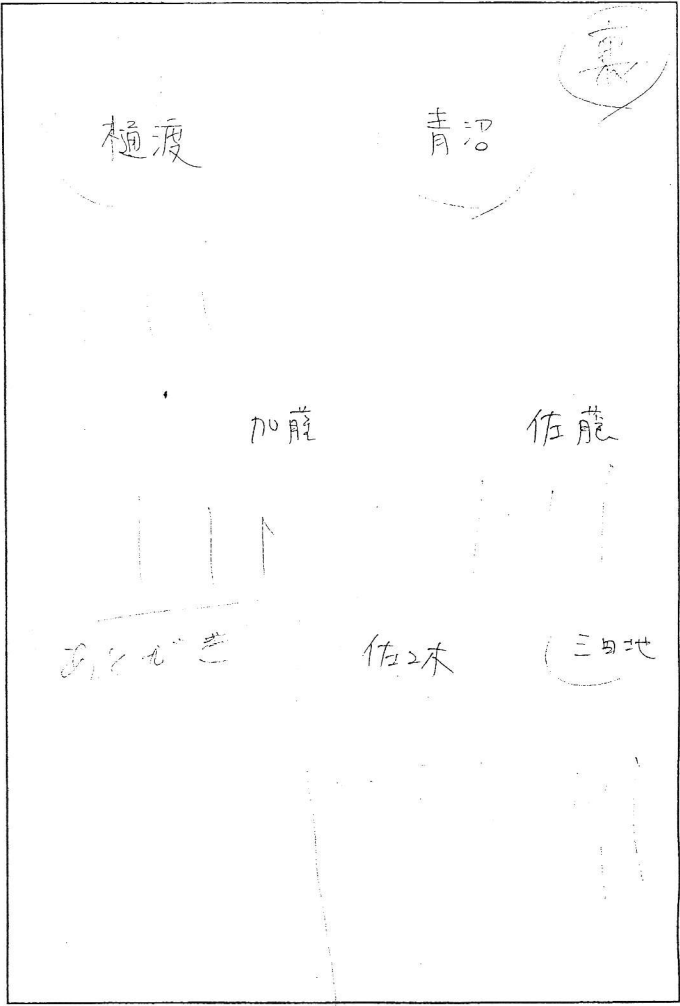 裏
樋渡 青沼
加藤 佐藤
あとがき 佐々木 三田地